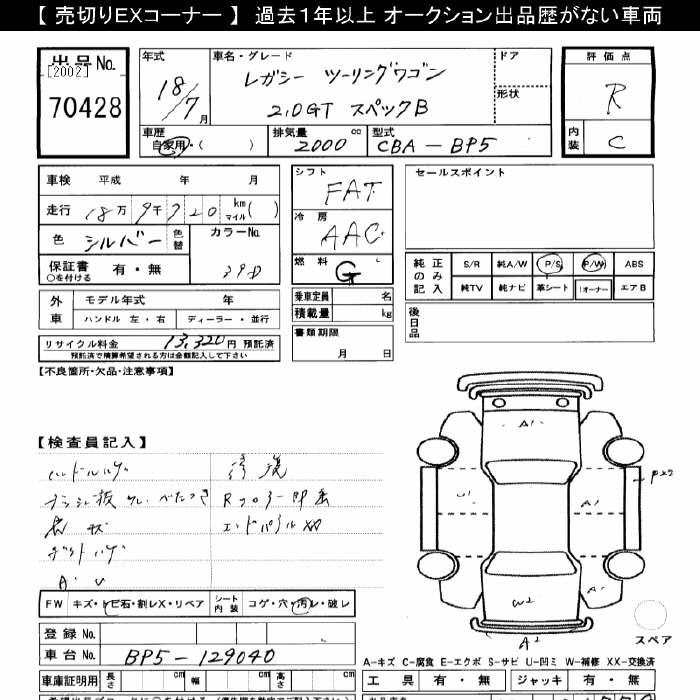 【 売切りEXコーナー 】 過去1年以上 オークション出品歴がない車両
出品No.
[2002]
70428
年式
18/7月
車名・グレード
レガシー ツーリングワゴン
2.0GT スペックB
ドア
形状
評価点
R
内装
C
車歴
自家用・( )
排気量
2000 cc
型式
CBA-BP5
車検 平成 年 月
走行 18万9千720 km マイル( )
色 シルバー 色替
カラーNo.
39D
保証書 有・無
○を付ける
シフト
FAT
冷房
AAC
燃料
G
乗車定員 名
積載量 kg
書類期限
月 日
セールスポイント
純正のみ記入
S/R 純A/W P/S P/W ABS
純TV 純ナビ 革シート 1オーナー エアB
後日品
外車
モデル年式 年
ハンドル 左・右 ディーラー・並行
リサイクル料金 13,320円 預託済
預託済で精算希望される方は金額記入して下さい
【不良箇所・欠品・注意事項】
【検査員記入】
ハンドルハゲ 修復
エンドパネルXX
A・U
A1
U1
A1
W2
A1
A2
スペア
FW キズ・トビ石・割レX・リペア シート内装 コゲ・穴・汚レ・破レ
登録No.
車台No. BP5-129040
A-キズ C-腐食 E-エクボ S-サビ U-凹ミ W-補修 XX-交換済
車庫証明用 長さ cm 幅 cm 高さ cm
工具 有・無 ジャッキ 有・無